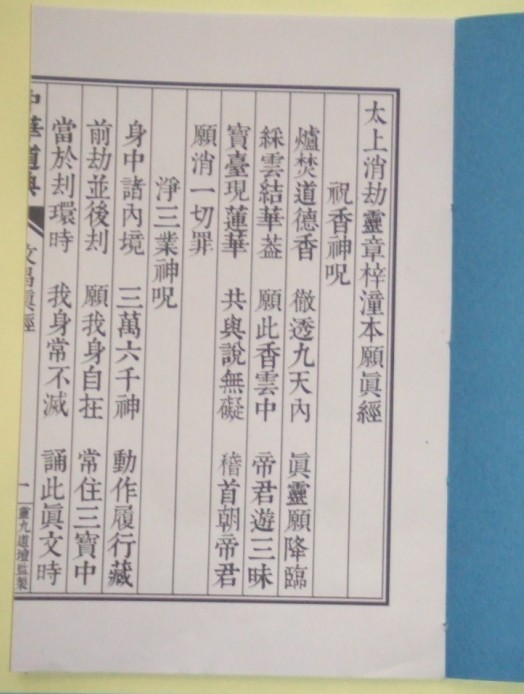 太上消劫靈章梓潼本願眞經
祝香神呪
爐焚道德香 徹透九天內 眞靈願降臨
綵雲結華葢 願此香雲中 帝君遊三昧
寶臺現蓮華 共與說無礙 稽首朝帝君
願消一切罪
淨三業神呪
身中諸內境 三萬六千神 動作履行藏
前劫並後刦 願我身自在 常住三寶中
當於刦環時 我身常不滅 誦此眞文時
中華道典 文昌眞經 一 靈九道壇監製